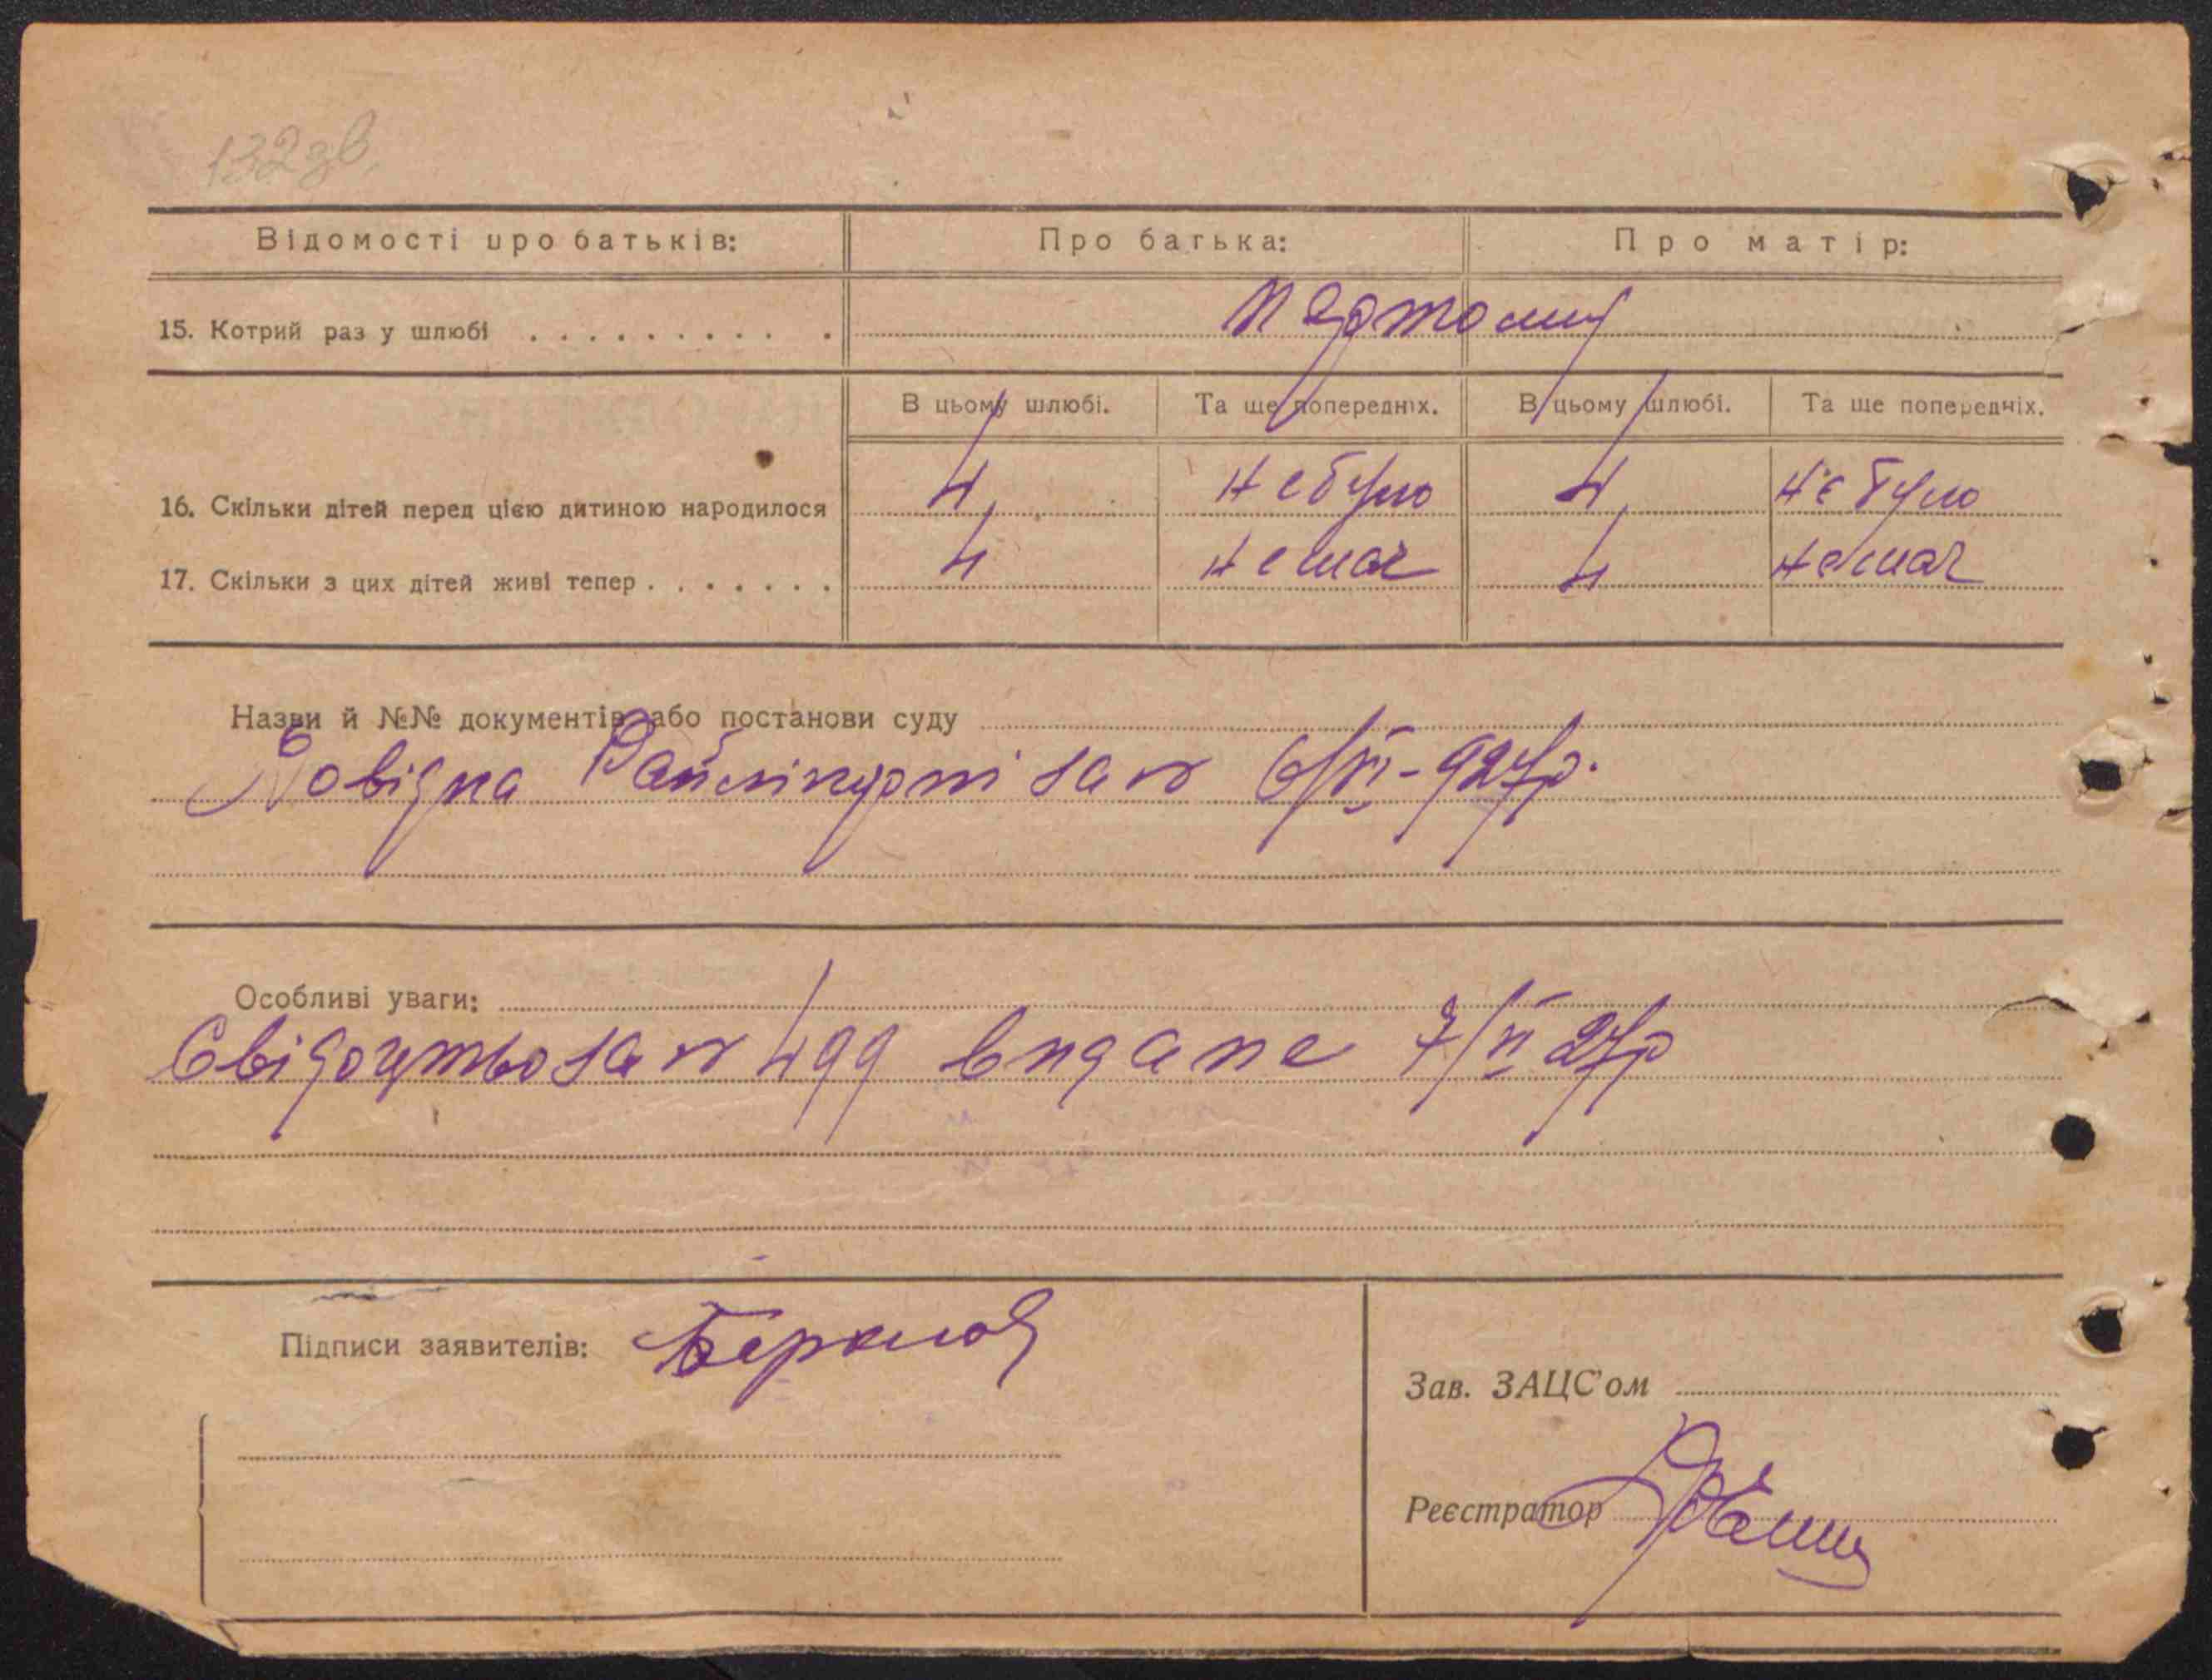 132 зв.
Відомості про батьків: Про батька: Про матір:
15. Котрий раз у шлюбі . . . . . . . . . .
В цьому шлюбі. Та ще попередніх. В цьому шлюбі. Та ще попередніх.
16. Скільки дітей перед цією дитиною народилося 4 не було 4 не було
17. Скільки з цих дітей живі тепер . . . . . . . 4 немає 4 немає
Назви й №№ документів або постанови суду
Довідка за № 6/VI-927р.
Особливі уваги:
Свідоцтво за № 499 видане 7/VI 27р
Підписи заявителів:
Зав. ЗАЦС'ом
Реєстратор